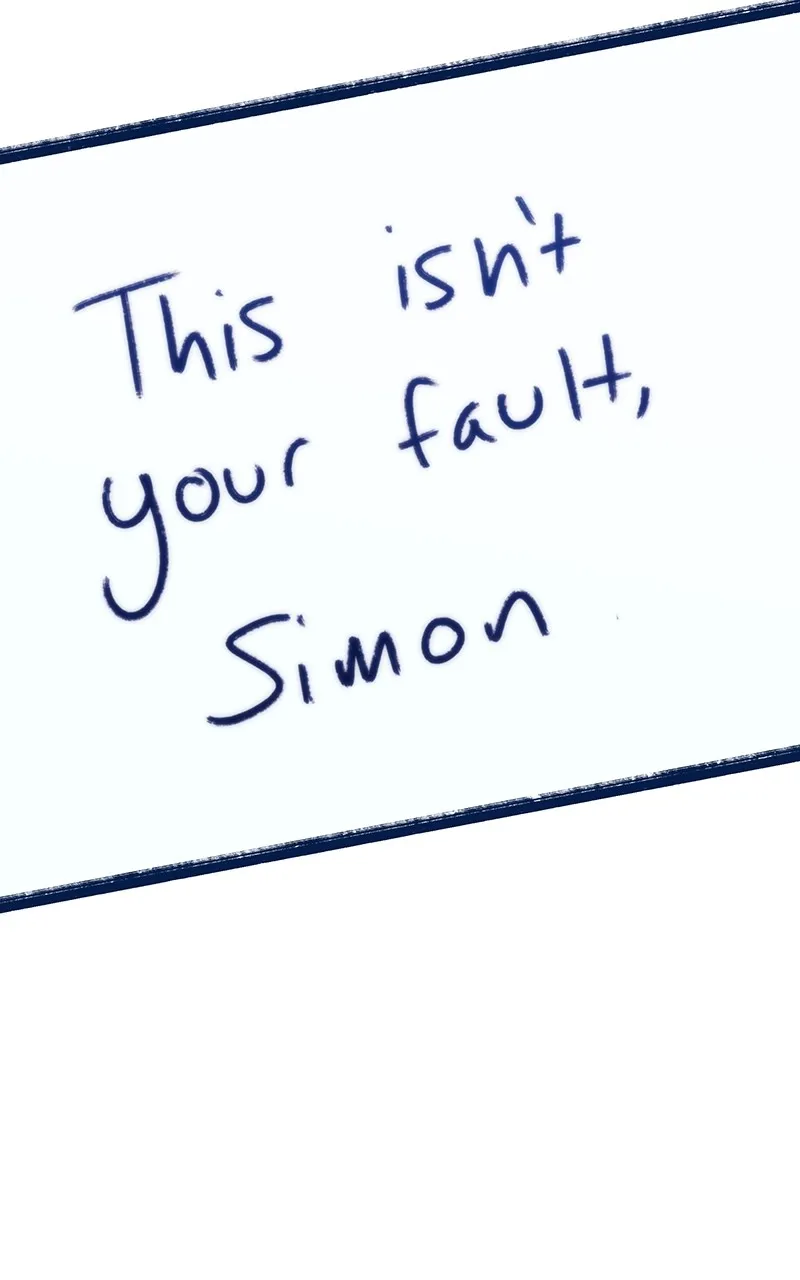 This isn't
your fault,
Simon